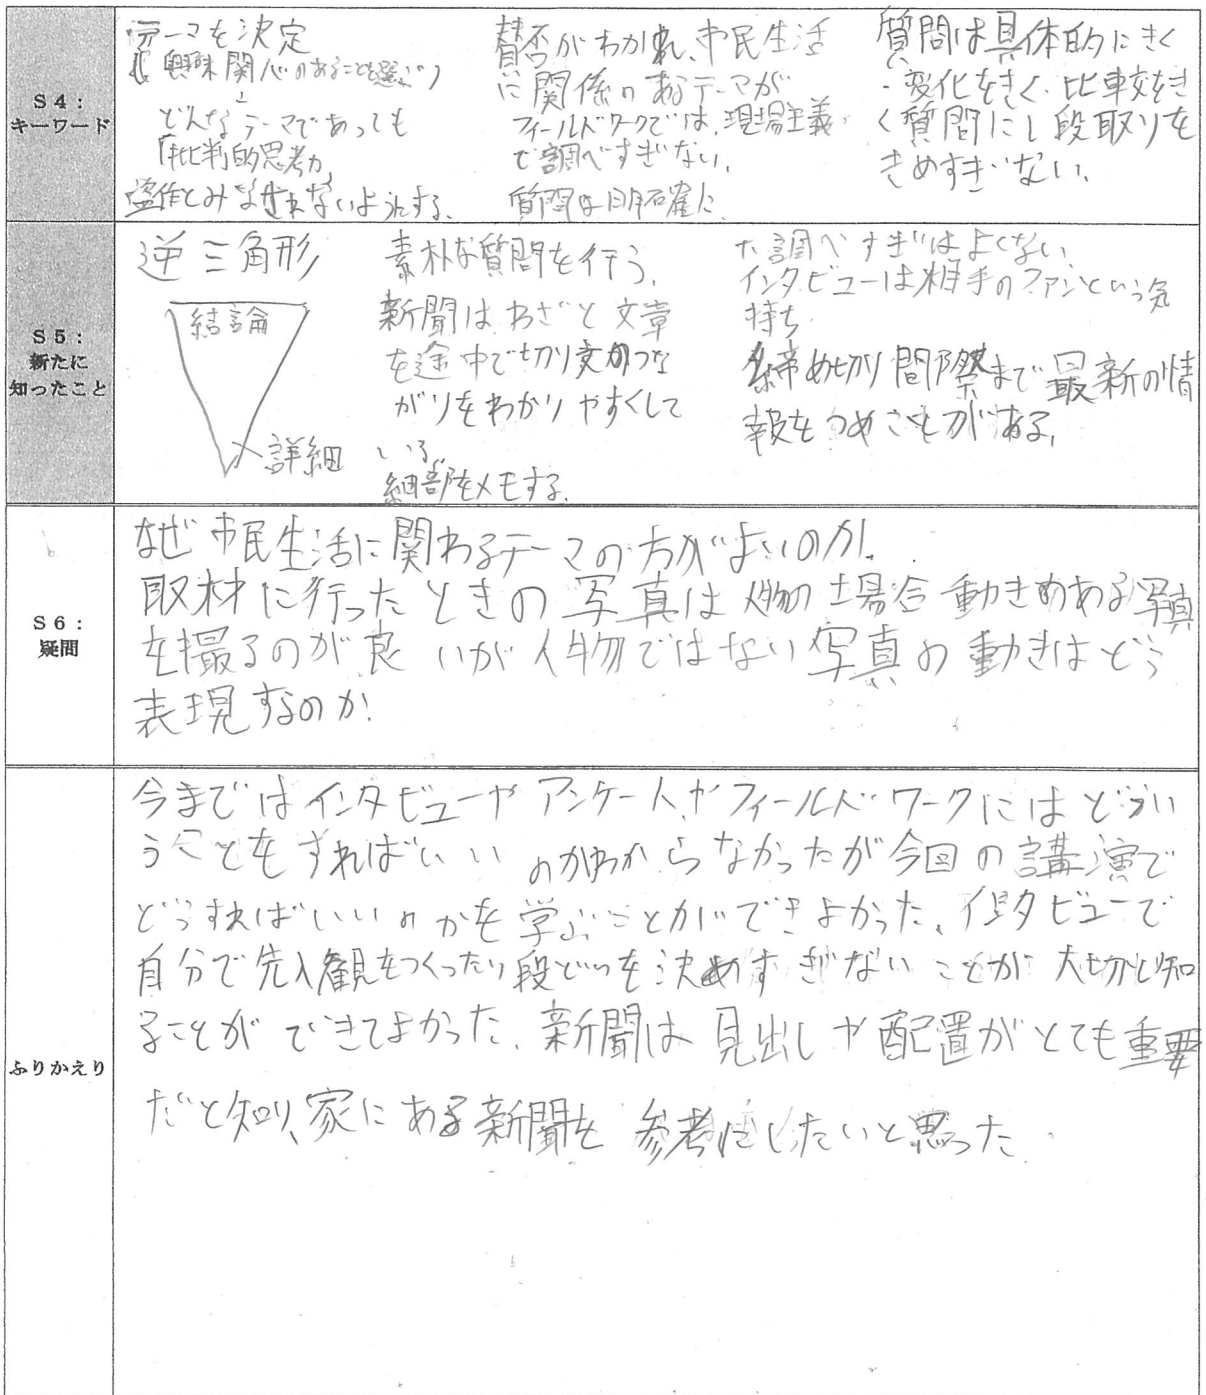 S4：
キーワード
テーマを決定
興味関心のあることを選ぶ
どんなテーマであっても
「批判的思考力」
盗作とみなされないようにする。
賛否がわかれ、市民生活
に関係のあるテーマが
フィールドワークでは、現場主義
で調べすぎない。
質問は明確に
質問は具体的にきく
・変化をきく・比較をき
く質問にし段取りを
きめすぎない。
S5：
新たに
知ったこと
逆三角形
結論
詳細
素朴な質問を行う。
新聞はわざと文章
を途中で切り文のつな
がりをわかりやすくして
いる。
細部をメモする。
調べすぎはよくない
インタビューは相手のファンという気
持ち
締め切り間際まで最新の情
報をつめこむがある。
S6：
疑問
なぜ市民生活に関わるテーマの方がよいのか。
取材に行ったときの写真は人物の場合動きのある写真
を撮るのが良いが人物ではない写真の動きはどう
表現するのか。
ふりかえり
今まではインタビューやアンケート、やフィールドワークにはどうい
うことをすればいいのかわからなかったが今回の講演で
どうすればいいのかを学ぶことができよかった。インタビューで
自分で先入観をつくったり段どりを決めすぎないことが大切と知
ることができてよかった。新聞は見出しや配置がとても重要
だと知り、家にある新聞を参考にしたいと思った